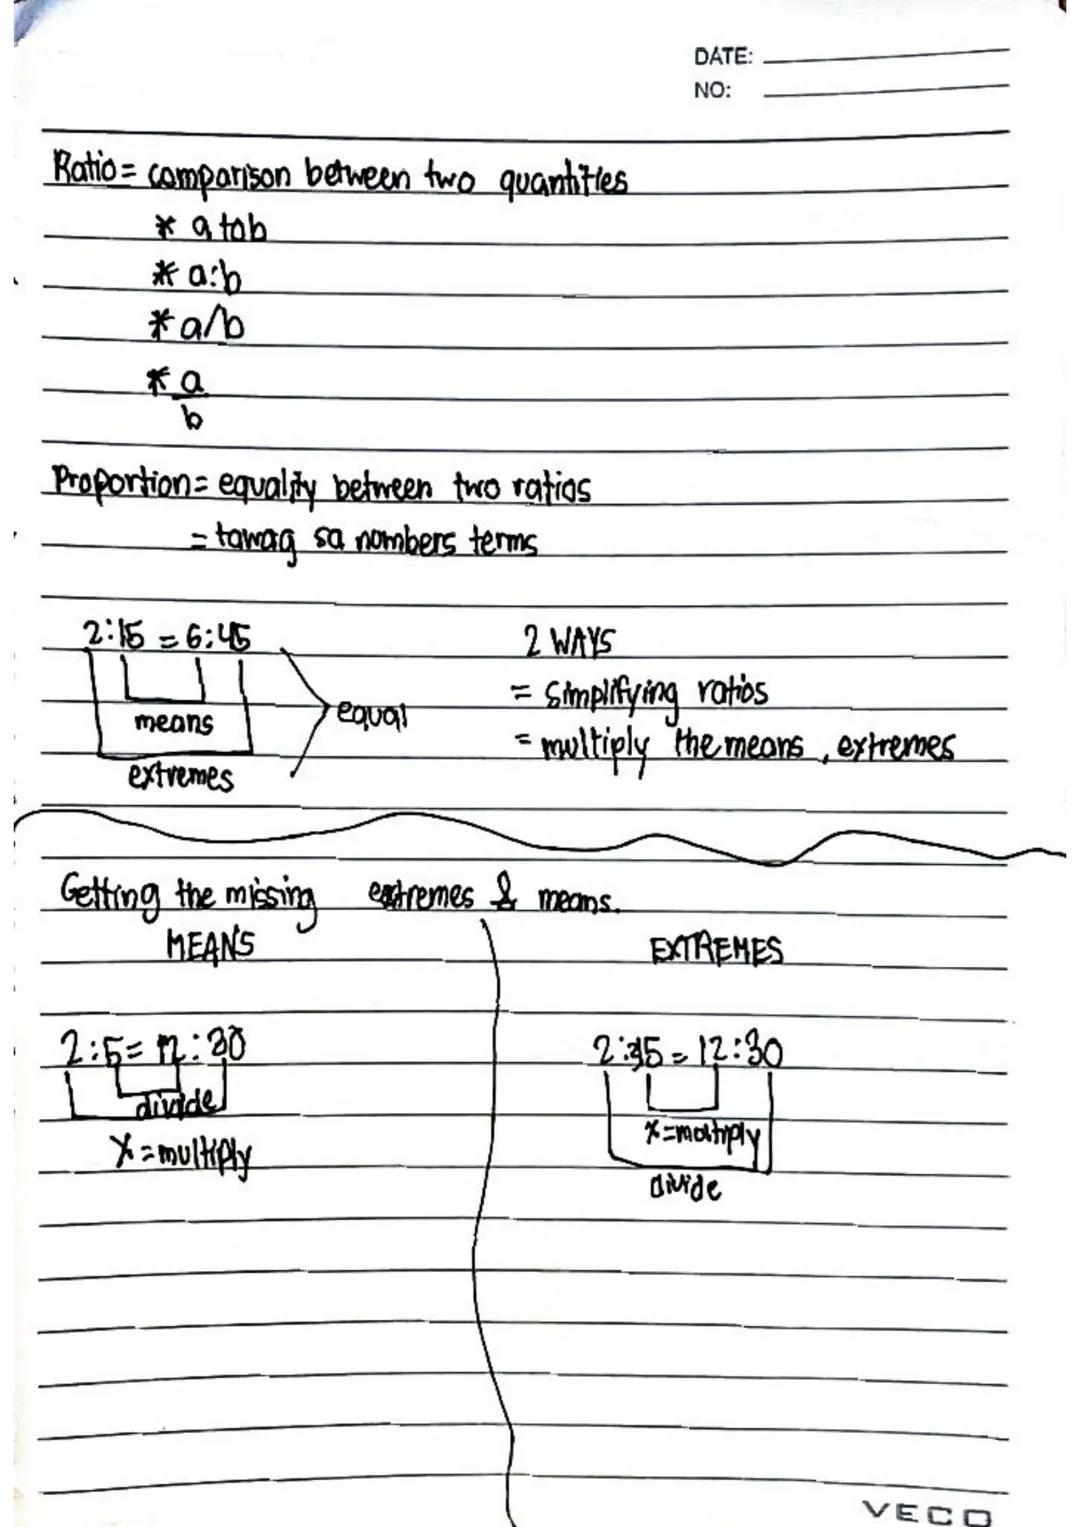 DATE:
NO:
Ratio = comparison between two quantities
* a to b
* a:b
* a/b
* a
b
Proportion = equality between two ratios
= tawag sa numbers terms
2:15 = 6:45
means
extremes
equal
2 WAYS
= simplifying ratios
= multiply the means, extremes
Getting the missing extremes & means.
MEANS
2:5 = 12:30
divide
x = multiply
EXTREMES
2: = 12:30
x = multiply
divide
VECO